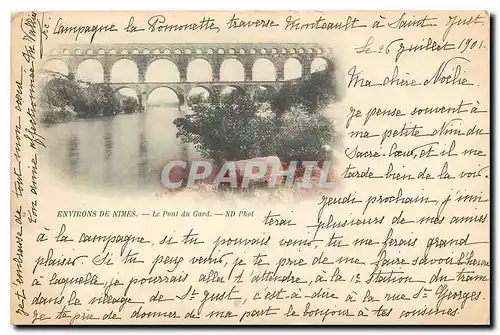 Campagne la Pomonette traverse Montcault à Saint Just
Le 26 juillet 1901.
Ma chère Noëlie.
Je pense souvent à
ma petite Nim du
Sacré-Cœur, et il me
tarde bien de la voir.
Jeudi prochain, j'invi
terai plusieurs de mes amies
à la campagne, si tu pouvais venir, tu me ferais grand
plaisir. Si tu peux venir, je te prie de me faire savoir l'heure
à laquelle, je pourrais aller t'attendre, à la 1e Station du tram
dans le village de St Just, c'est à dire à la rue St Georges.
Je te prie de donner de ma part le bonjour à tes cousines.
Je t'embrasse de tout mon cœur.
ton amie
ENVIRONS DE NIMES. — Le Pont du Gard. — ND Phot
CPARHIPHARIA